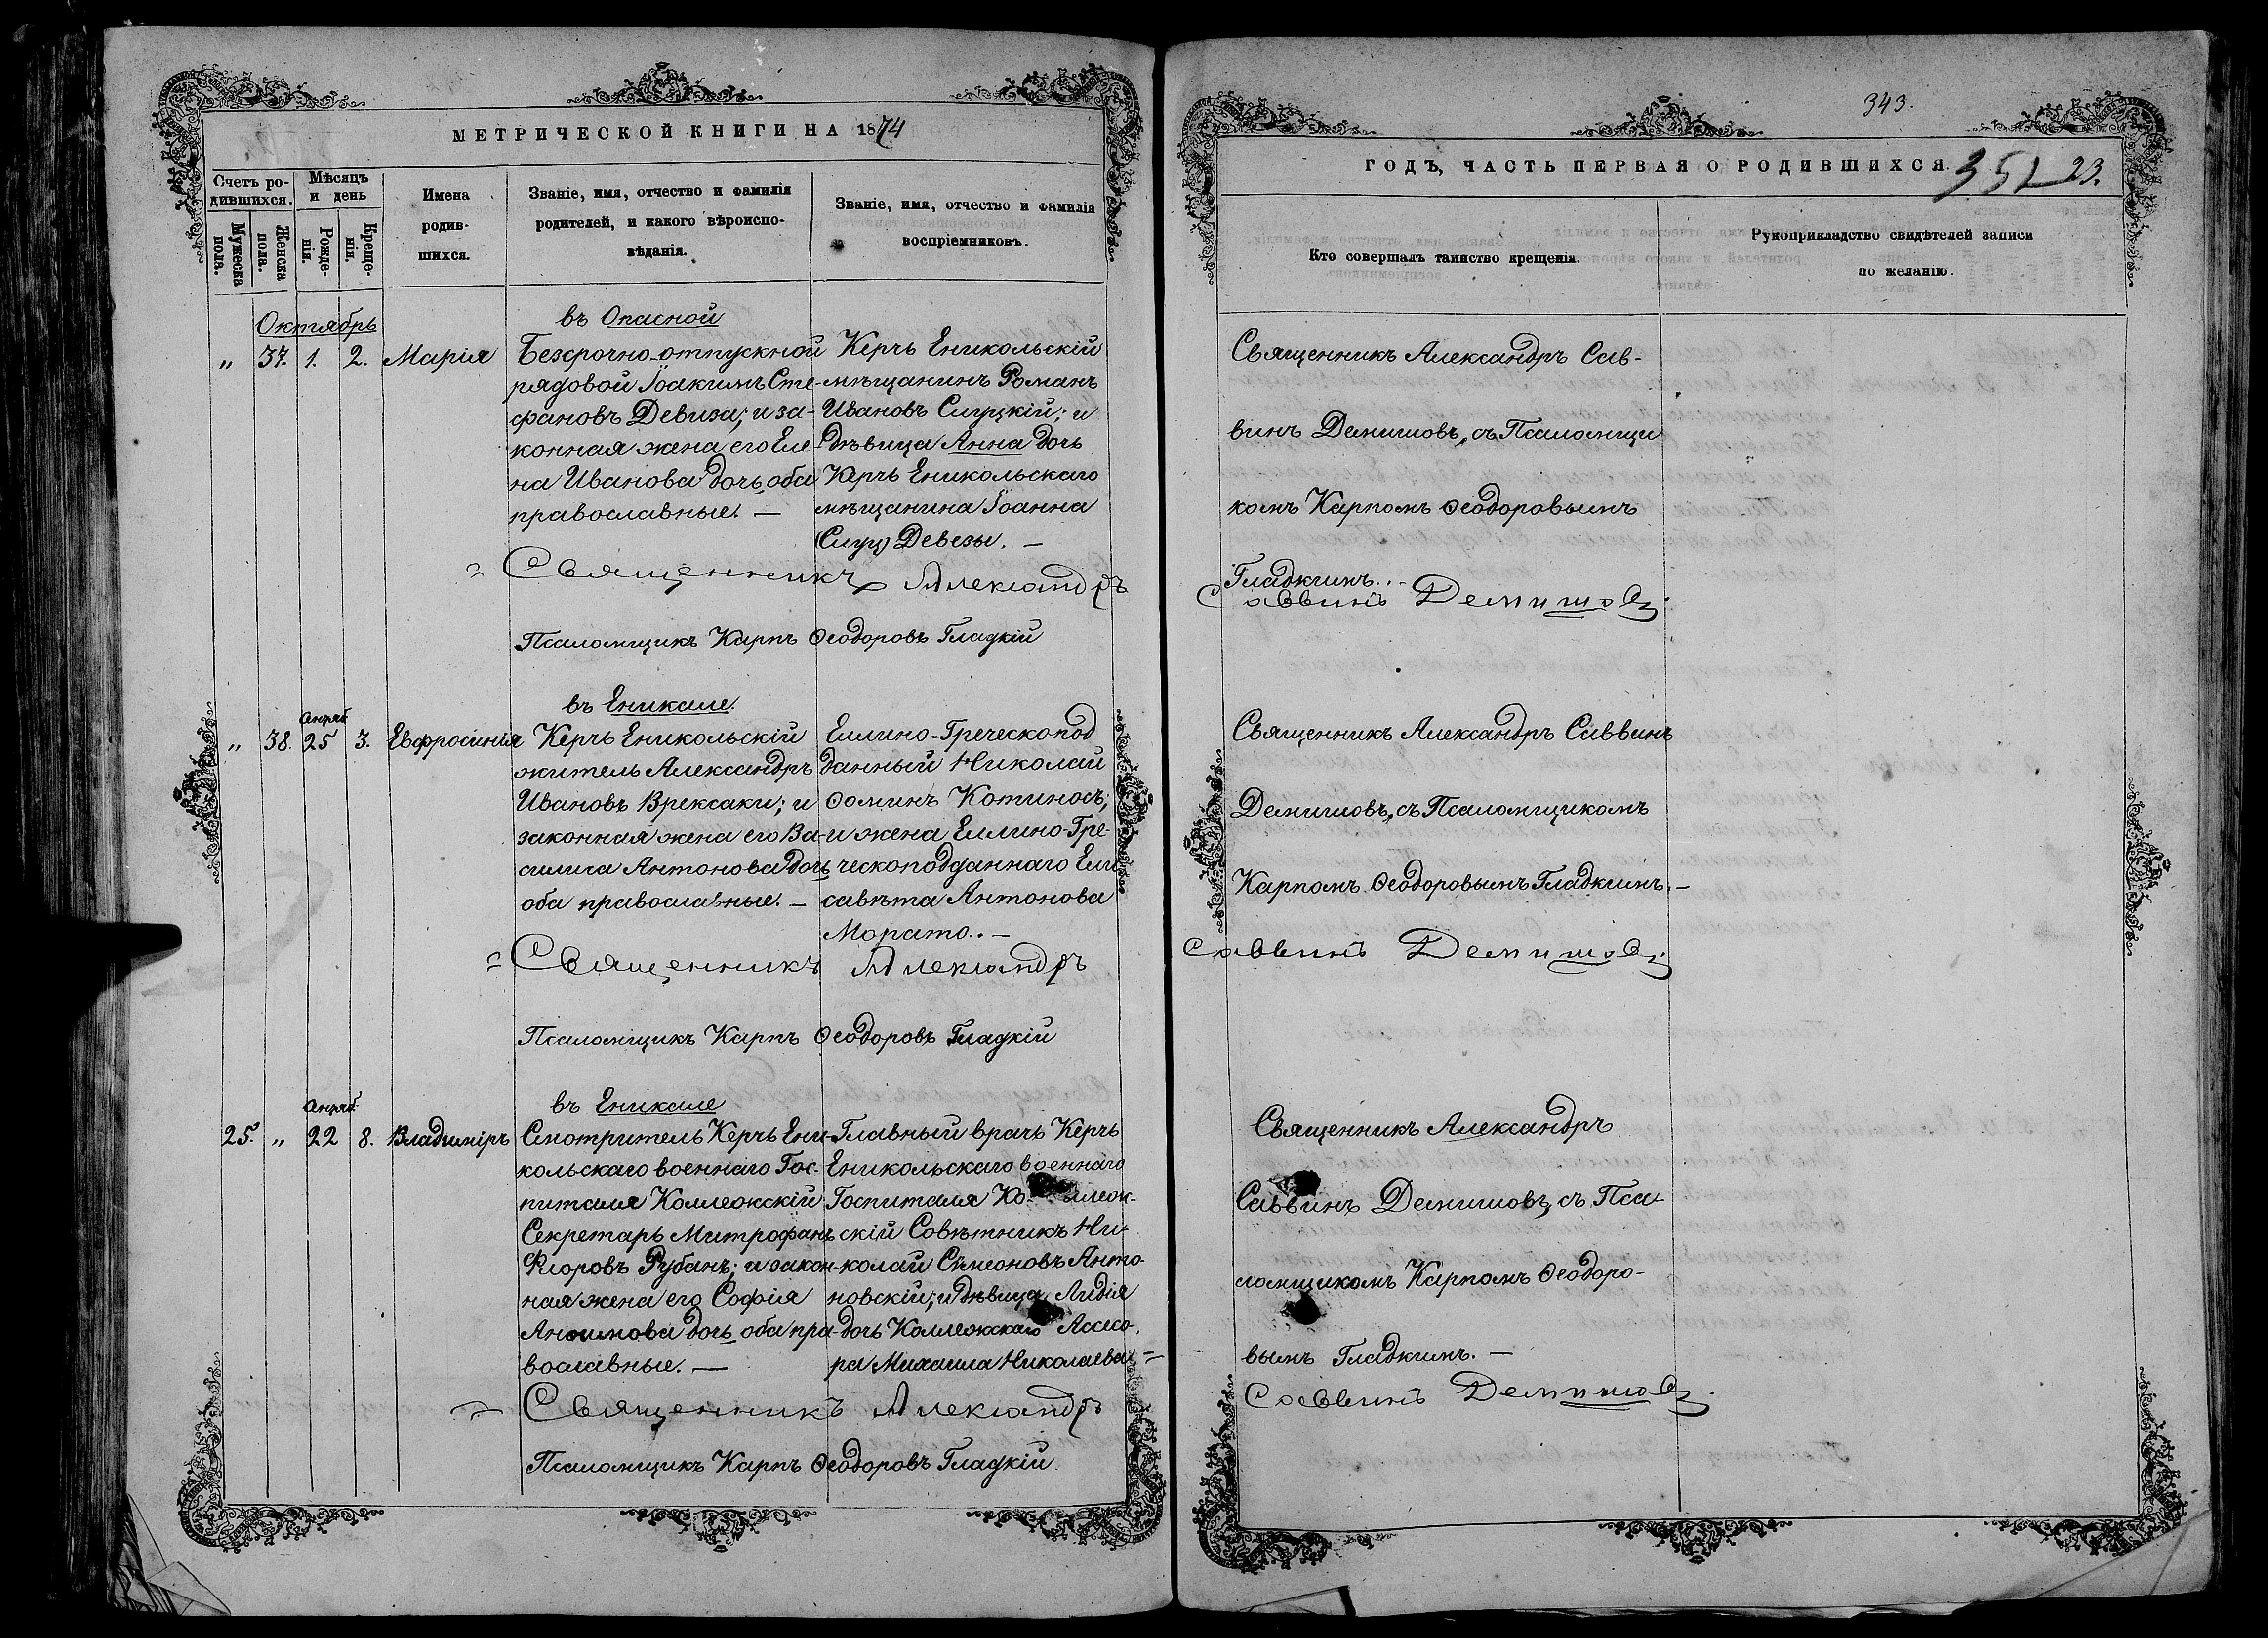 МЕТРИЧЕСКОЙ КНИГИ НА 1874
Счетъ ро-
дившихся.
Мужеска
пола.
Женска
пола.
Мѣсяцъ
и день
Рожде-
нія.
Креще-
нія.
Имена
родив-
шихся.
Званіе, имя, отчество и фамилія
родителей, и какого вѣроиспо-
вѣданія.
Званіе, имя, отчество и фамилія
воспріемниковъ.
Октябрь
въ Опасной
„ 37. 1. 2. Марія
Безсрочно-отпускной
рядовой Іоакимъ Сте-
фановъ Девиза; и за-
конная жена его Еле-
на Иванова дочь, оба
православные. —
Керчь Еникольскій
мѣщанинъ Романъ
Ивановъ Слуцкій; и
дѣвица Анна дочь
Керчь Еникольскаго
мѣщанина Іоанна
(Слуц) Девезы. —
= Священникъ Александръ
Псаломщикъ Карпъ Ѳеодоровъ Гладкій
въ Еникале.
„ 38. 25 3. Евфросинія
Керчь Еникольскій
житель Александръ
Ивановъ Врексаки; и
законная жена его Ва-
силиса Антонова дочь
оба православные. —
Еллино-Греческопод
данный Николай
Ѳоминъ Котиносъ;
и жена Еллино-Гре-
ческоподданнаго Ели
савѣта Антонова
Морато. —
= Священникъ Александръ
Псаломщикъ Карпъ Ѳеодоровъ Гладкій
въ Еникале
25. „ 22 8. Владиміръ
Смотритель Керчь Ени-
кольскаго военнаго Гос-
питаля Коллежскій
Секретарь Митрофанъ
Флоровъ Рубанъ; и закон-
ная жена его Софія
Анѳимова дочь оба пра-
вославные. —
Главный врачъ Керчь
Еникольскаго военнаго
Госпиталя Ко- ллеж-
скій Совѣтникъ Ни-
колай Симеоновъ Анто-
новскій; и дѣвица Лидія
дочь Коллежскаго Ассесо-
ра Михаила Николаева =
= Священникъ Александръ
Псаломщикъ Карпъ Ѳеодоровъ Гладкій.
343.
ГОДЪ, ЧАСТЬ ПЕРВАЯ О РОДИВШИХСЯ.
351 23.
Кто совершалъ таинство крещенія.
Рукоприкладство свидѣтелей записи
по желанію.
Священникъ Александръ Сав-
винъ Демишовъ, съ Псаломщи
комъ Карпомъ Ѳеодоровымъ
Гладкимъ. -
Саввинъ Демишовъ
Священникъ Александръ Саввинъ
Демишовъ, съ Псаломщикомъ
Карпомъ Ѳеодоровымъ Гладкимъ. —
Саввинъ Демишовъ
Священникъ Александръ
Саввинъ Демишовъ, съ Пса
ломщикомъ Карпомъ Ѳеодоро-
вымъ Гладкимъ. —
Саввинъ Демишовъ